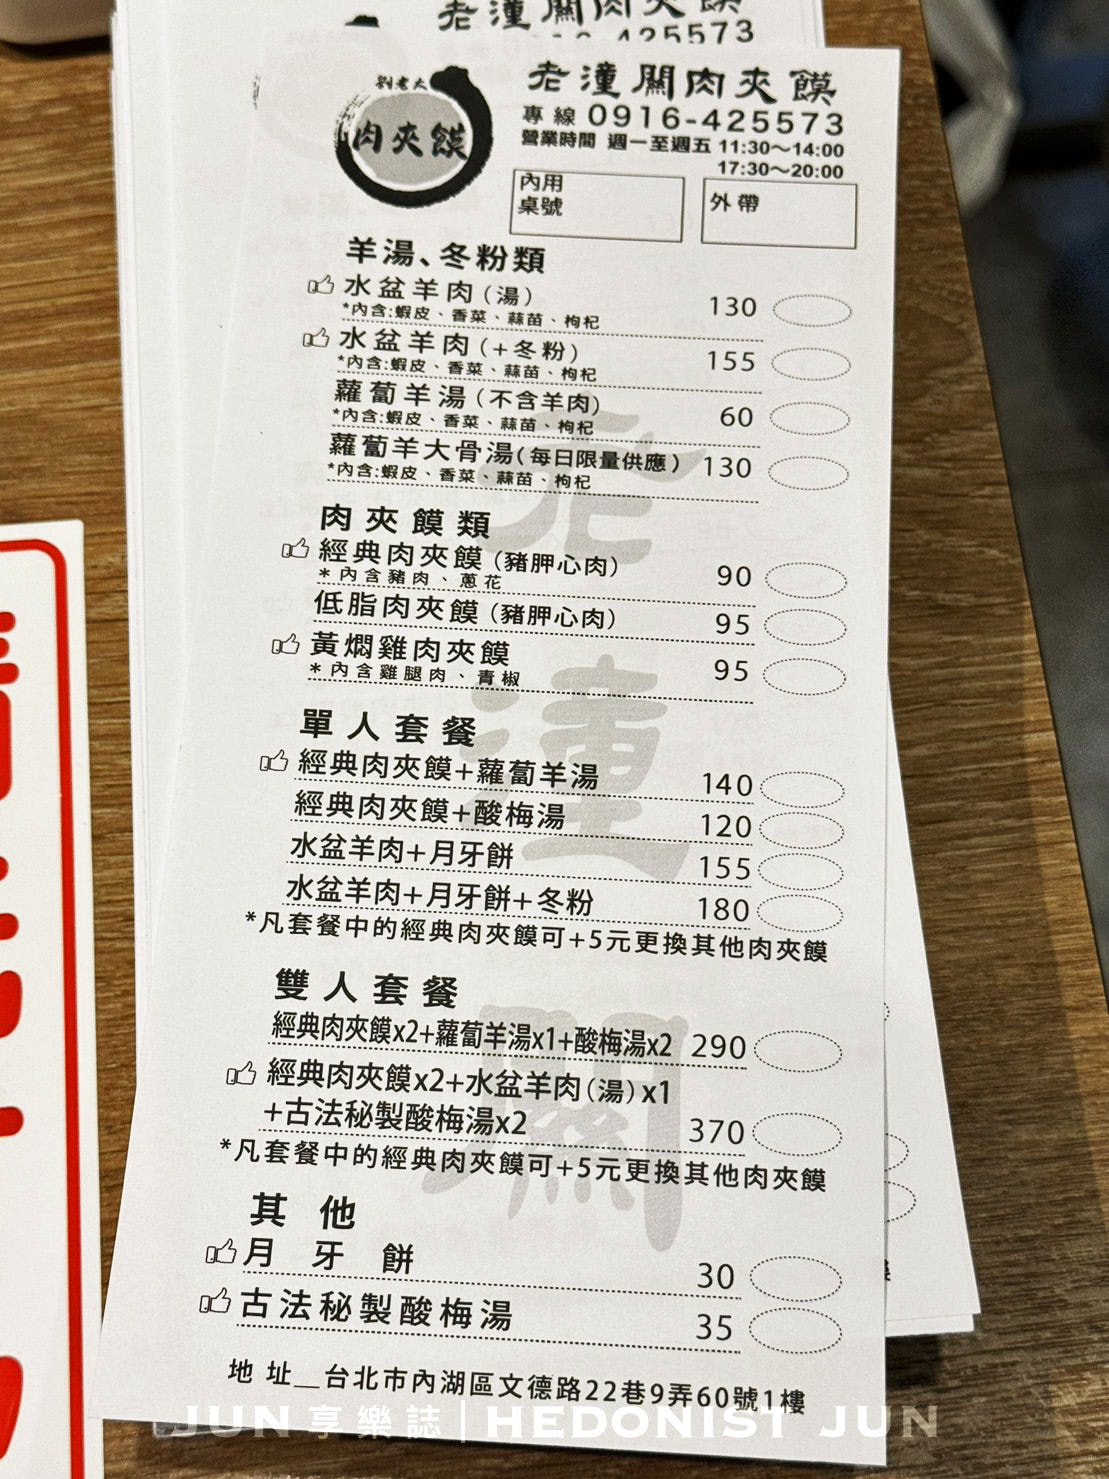 老潼關肉夾饃
425573
劉老大
肉夾饃
老潼關肉夾饃
專線 0916-425573
營業時間 週一至週五 11:30～14:00
17:30～20:00
內用
桌號
外帶
羊湯、冬粉類
水盆羊肉(湯) 130
*內含:蝦皮、香菜、蒜苗、枸杞
水盆羊肉(+冬粉) 155
*內含:蝦皮、香菜、蒜苗、枸杞
蘿蔔羊湯(不含羊肉) 60
*內含:蝦皮、香菜、蒜苗、枸杞
蘿蔔羊大骨湯(每日限量供應) 130
*內含:蝦皮、香菜、蒜苗、枸杞
肉夾饃類
經典肉夾饃(豬胛心肉) 90
*內含豬肉、蔥花
低脂肉夾饃(豬胛心肉) 95
黃燜雞肉夾饃 95
*內含雞腿肉、青椒
單人套餐
經典肉夾饃+蘿蔔羊湯 140
經典肉夾饃+酸梅湯 120
水盆羊肉+月牙餅 155
水盆羊肉+月牙餅+冬粉 180
*凡套餐中的經典肉夾饃可+5元更換其他肉夾饃
雙人套餐
經典肉夾饃x2+蘿蔔羊湯x1+酸梅湯x2 290
經典肉夾饃x2+水盆羊肉(湯)x1
+古法秘製酸梅湯x2 370
*凡套餐中的經典肉夾饃可+5元更換其他肉夾饃
其他
月牙餅 30
古法秘製酸梅湯 35
地址__台北市內湖區文德路22巷9弄60號1樓
老潼關
JUN享樂誌|HEDONIST JUN